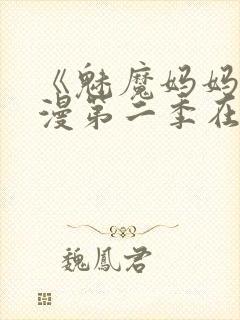 《魅魔妈妈
漫第二季在
魏鳳君